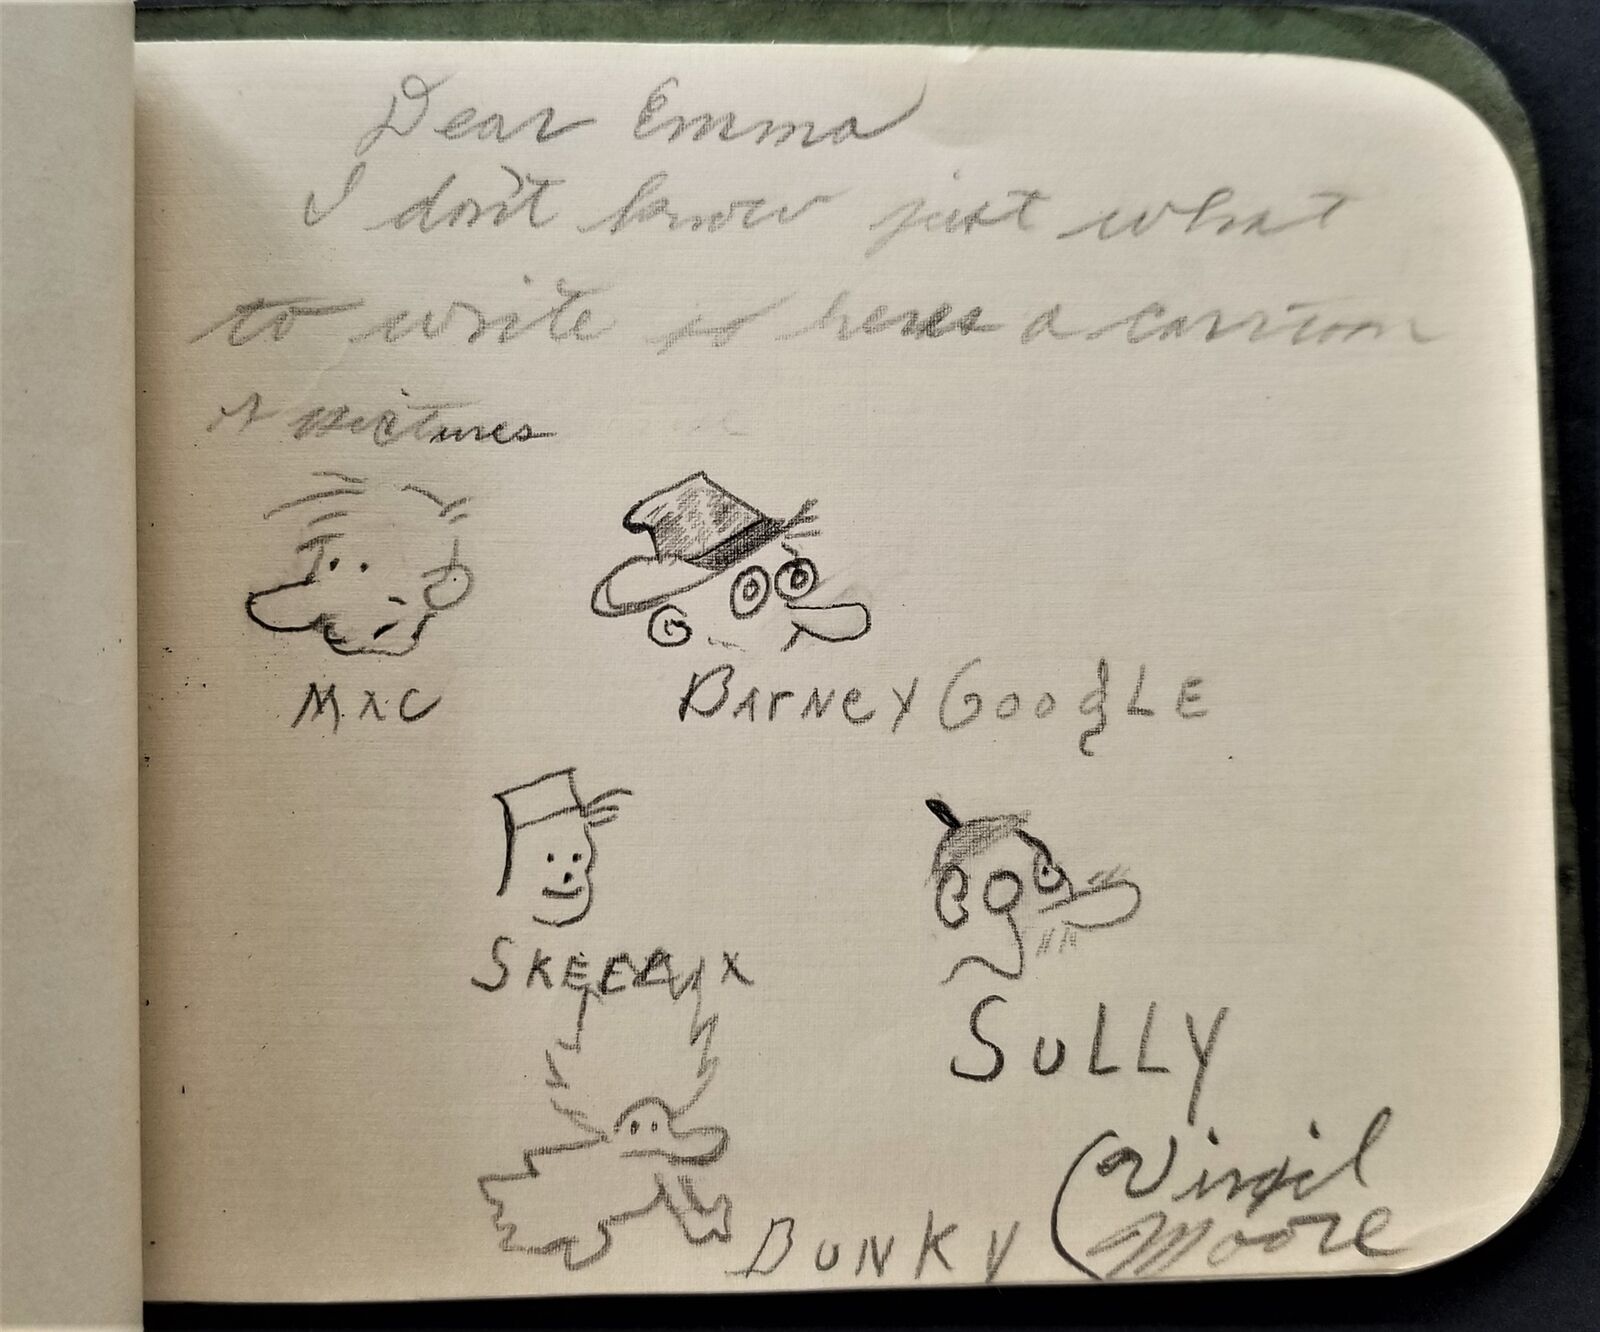 Dear Emma
I don't know just what
to write so heres a cartoon
of pictures
MAC
BARNEY GOOGLE
SKEEZIX
SULLY
BUNKY
(Virgil
Moore